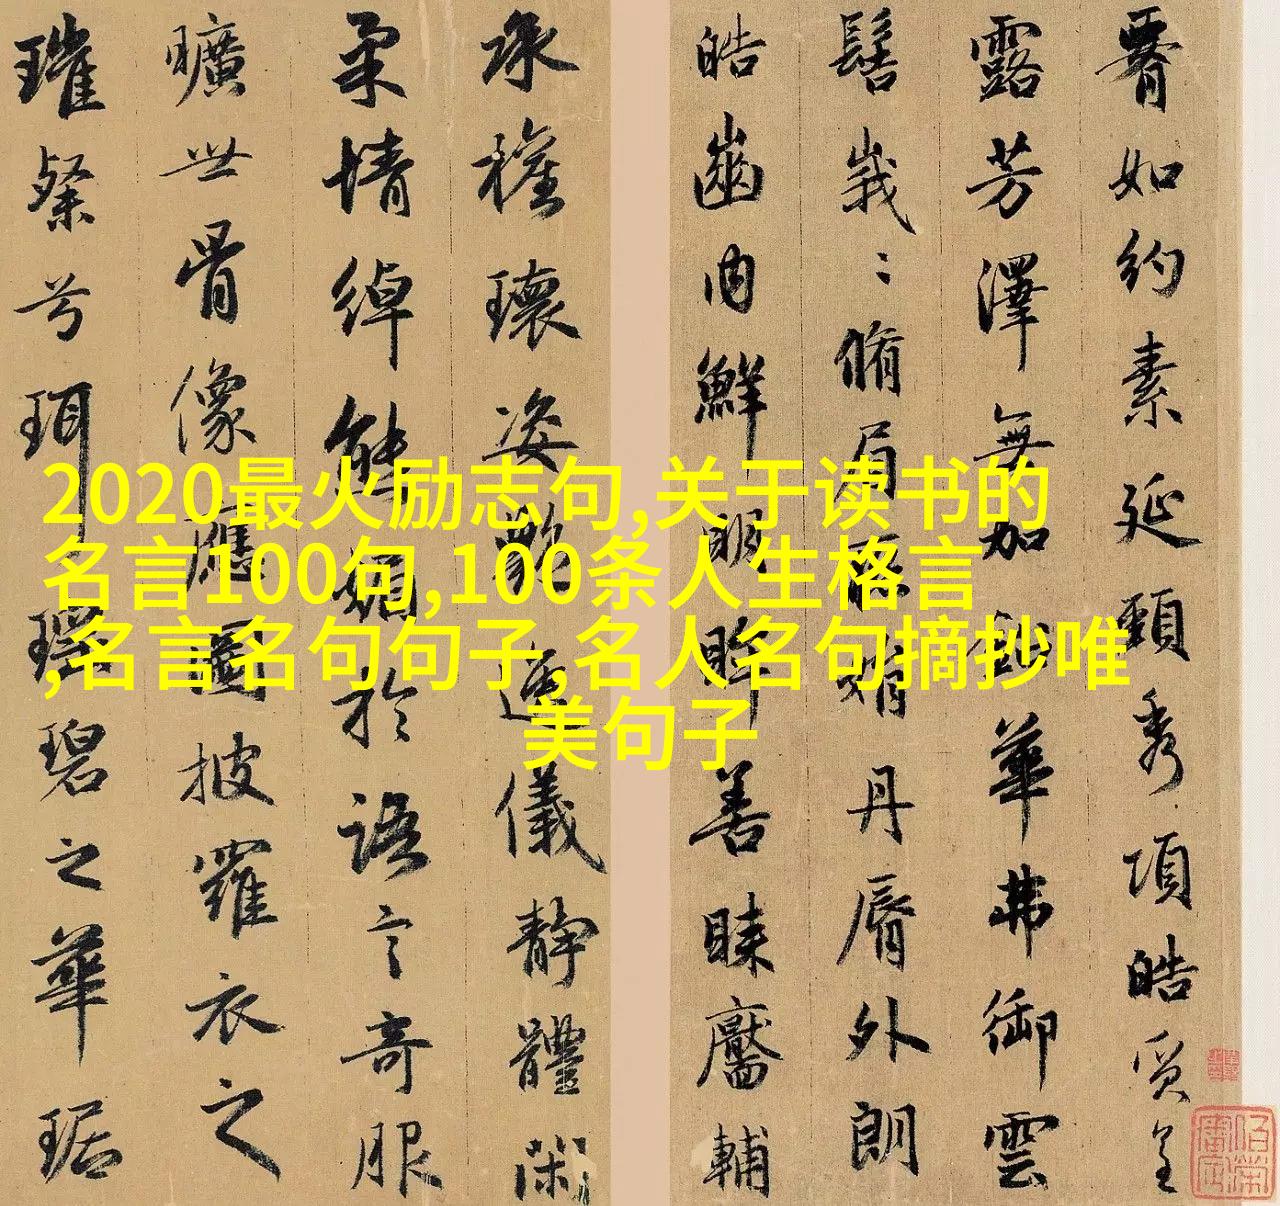 如約素延頸秀項皓質呈
露芳澤無加鉛華弗御雲
髻峩〻脩眉聯娟丹脣外朗
皓齒内鮮明眸善睞靨輔
承權瓌姿艷逸儀靜體閑
柔情綽態媚於語言奇服
曠世骨像應圖披羅衣之
璀粲兮珥瑤碧之華琚
2020最火励志句,关于读书的
名言100句,100条人生格言
,名言名句句子,名人名句摘抄唯
美句子